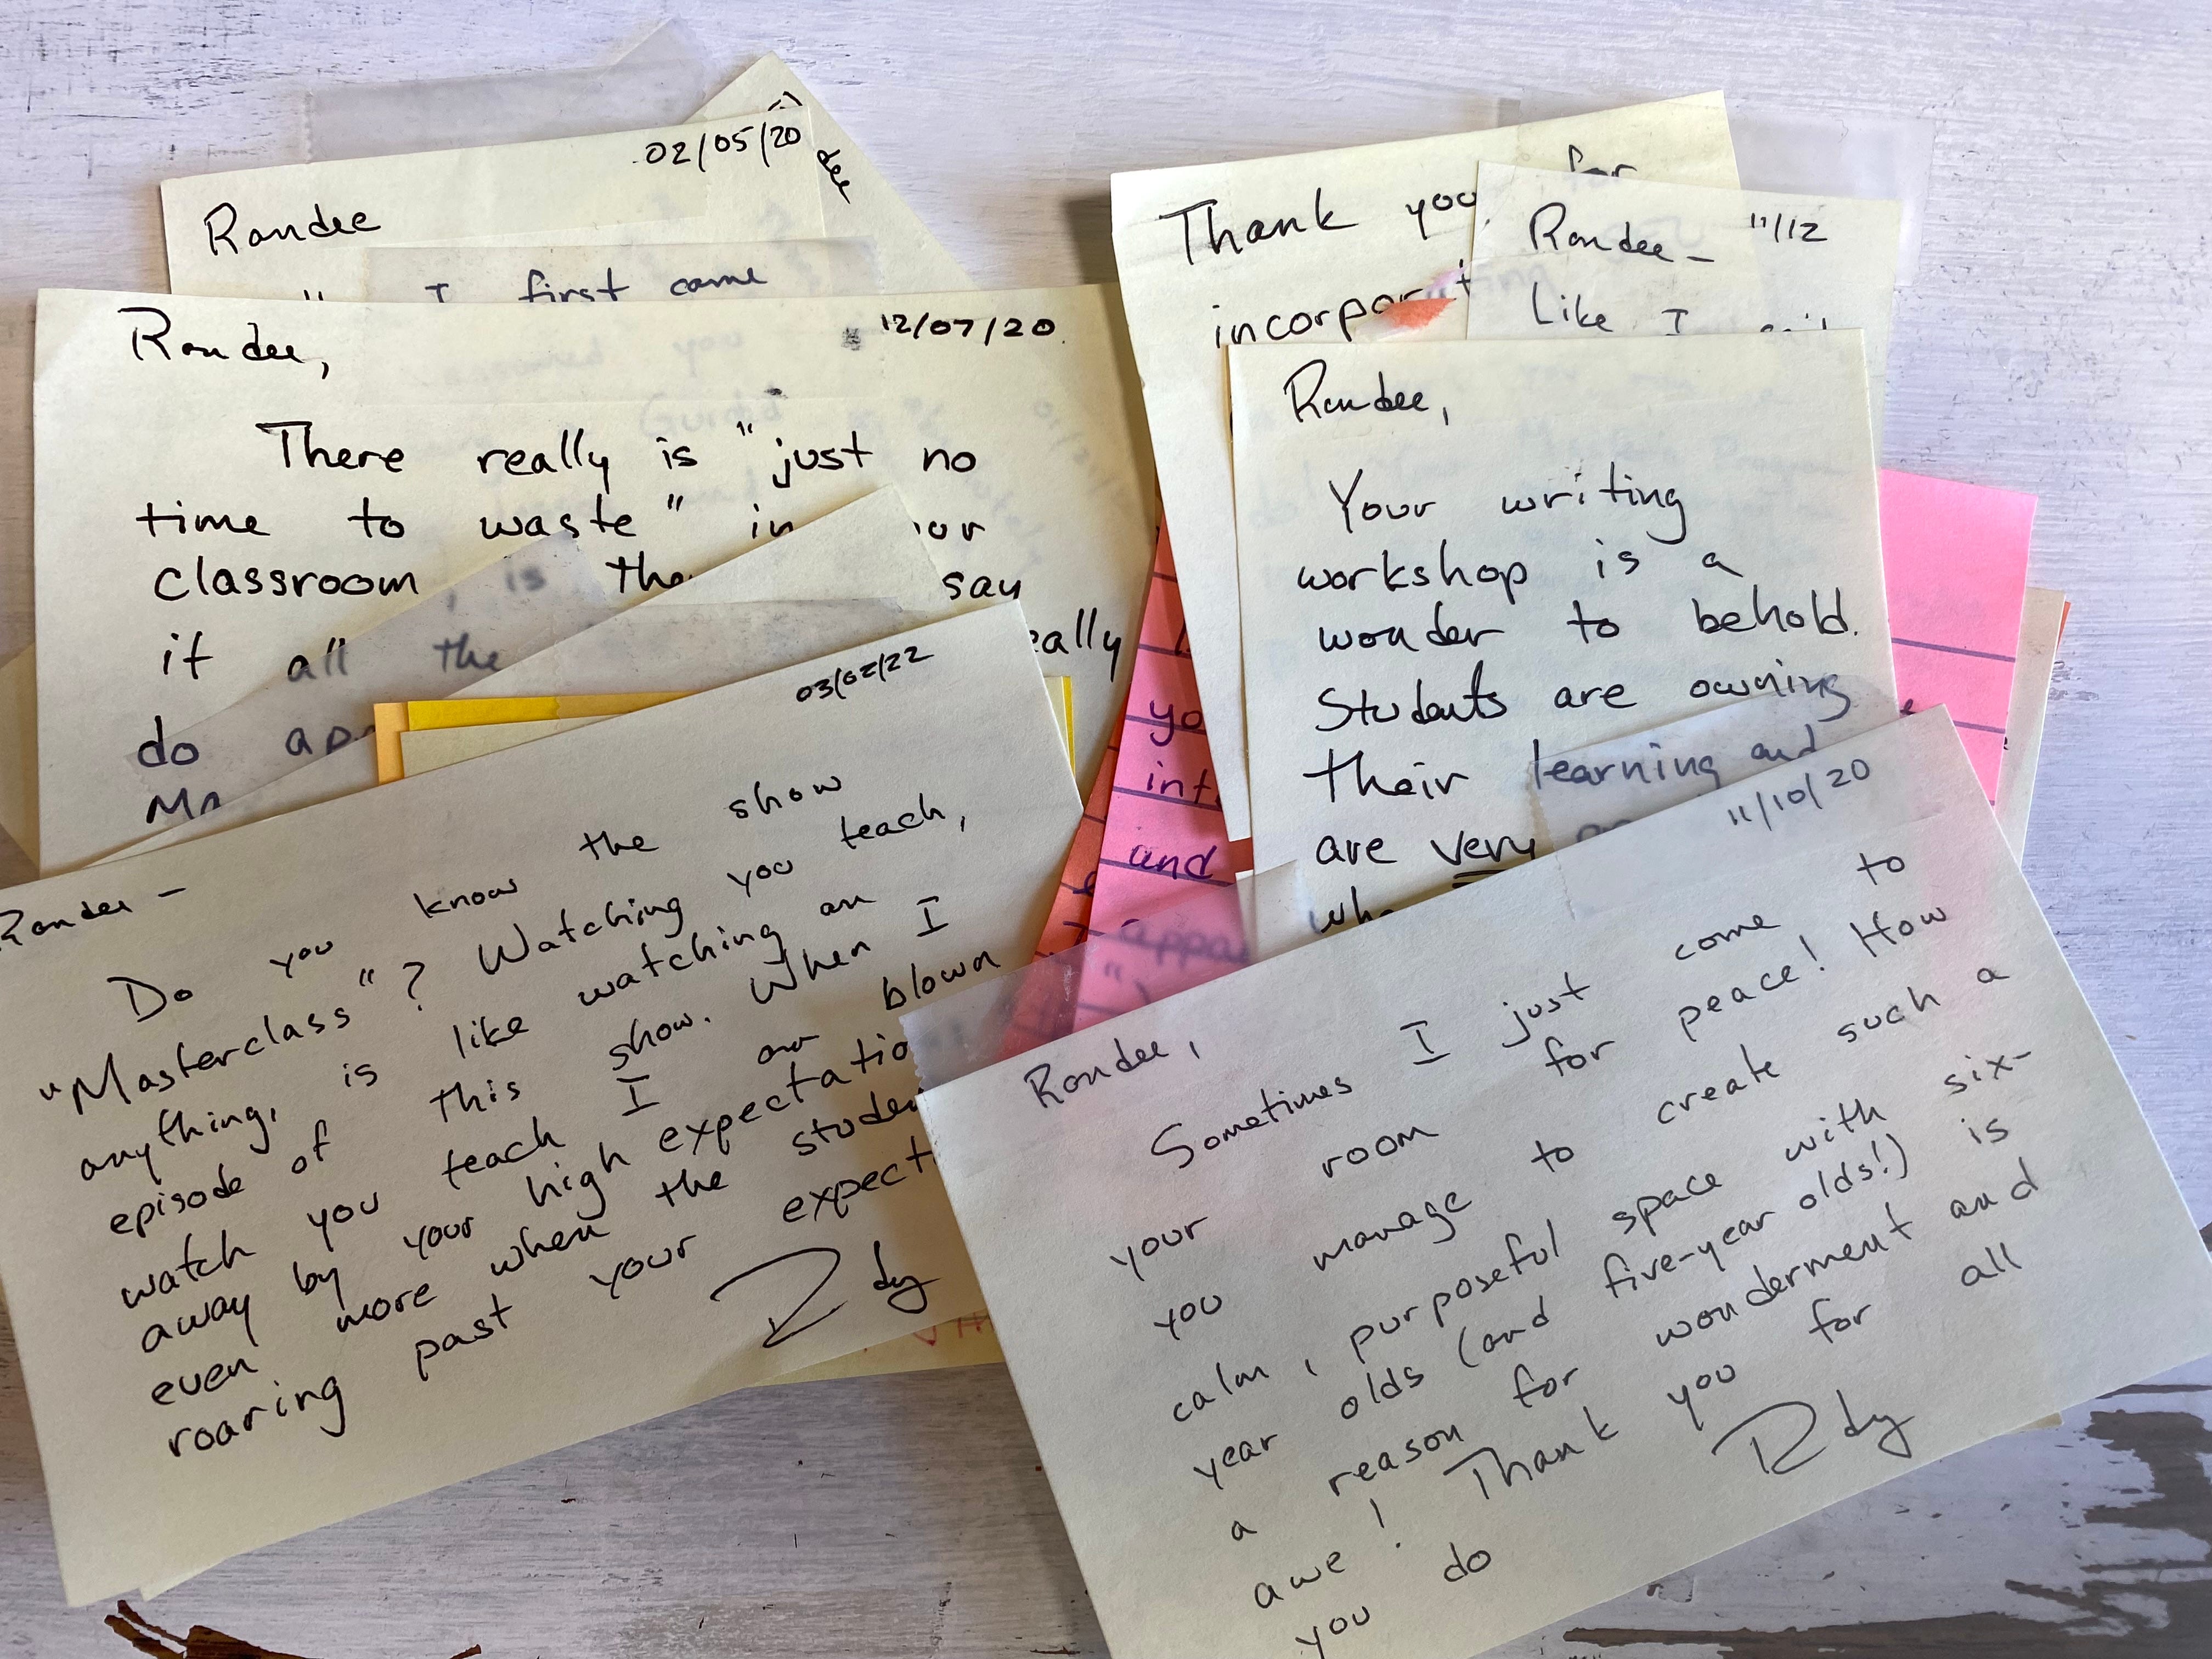 02/05/20
Randee
I first came
Randee,
12/07/20
There really is "just no
time to waste" in
classroom, is the say
if all the eally
do
03/02/22
Randee -
Do you know the show
"Masterclass"? Watching you teach,
anything, is like watching an
episode of this show. When I
watch you teach I am blown
away by your high expectatio
even more when the studen
roaring past your expect
Rdy
Thank you for
incorporating
Randee - 11/12
Like I said
Randee,
Your writing
workshop is a
wonder to behold.
Students are owning
their learning and
are very
yo
int
and
appa
11/10/20
Randee,
Sometimes I just come to
your room for peace! How
you manage to create such a
calm, purposeful space with six-
year olds (and five-year olds!) is
a reason for wonderment and
awe! Thank you for all
you do
Rdy